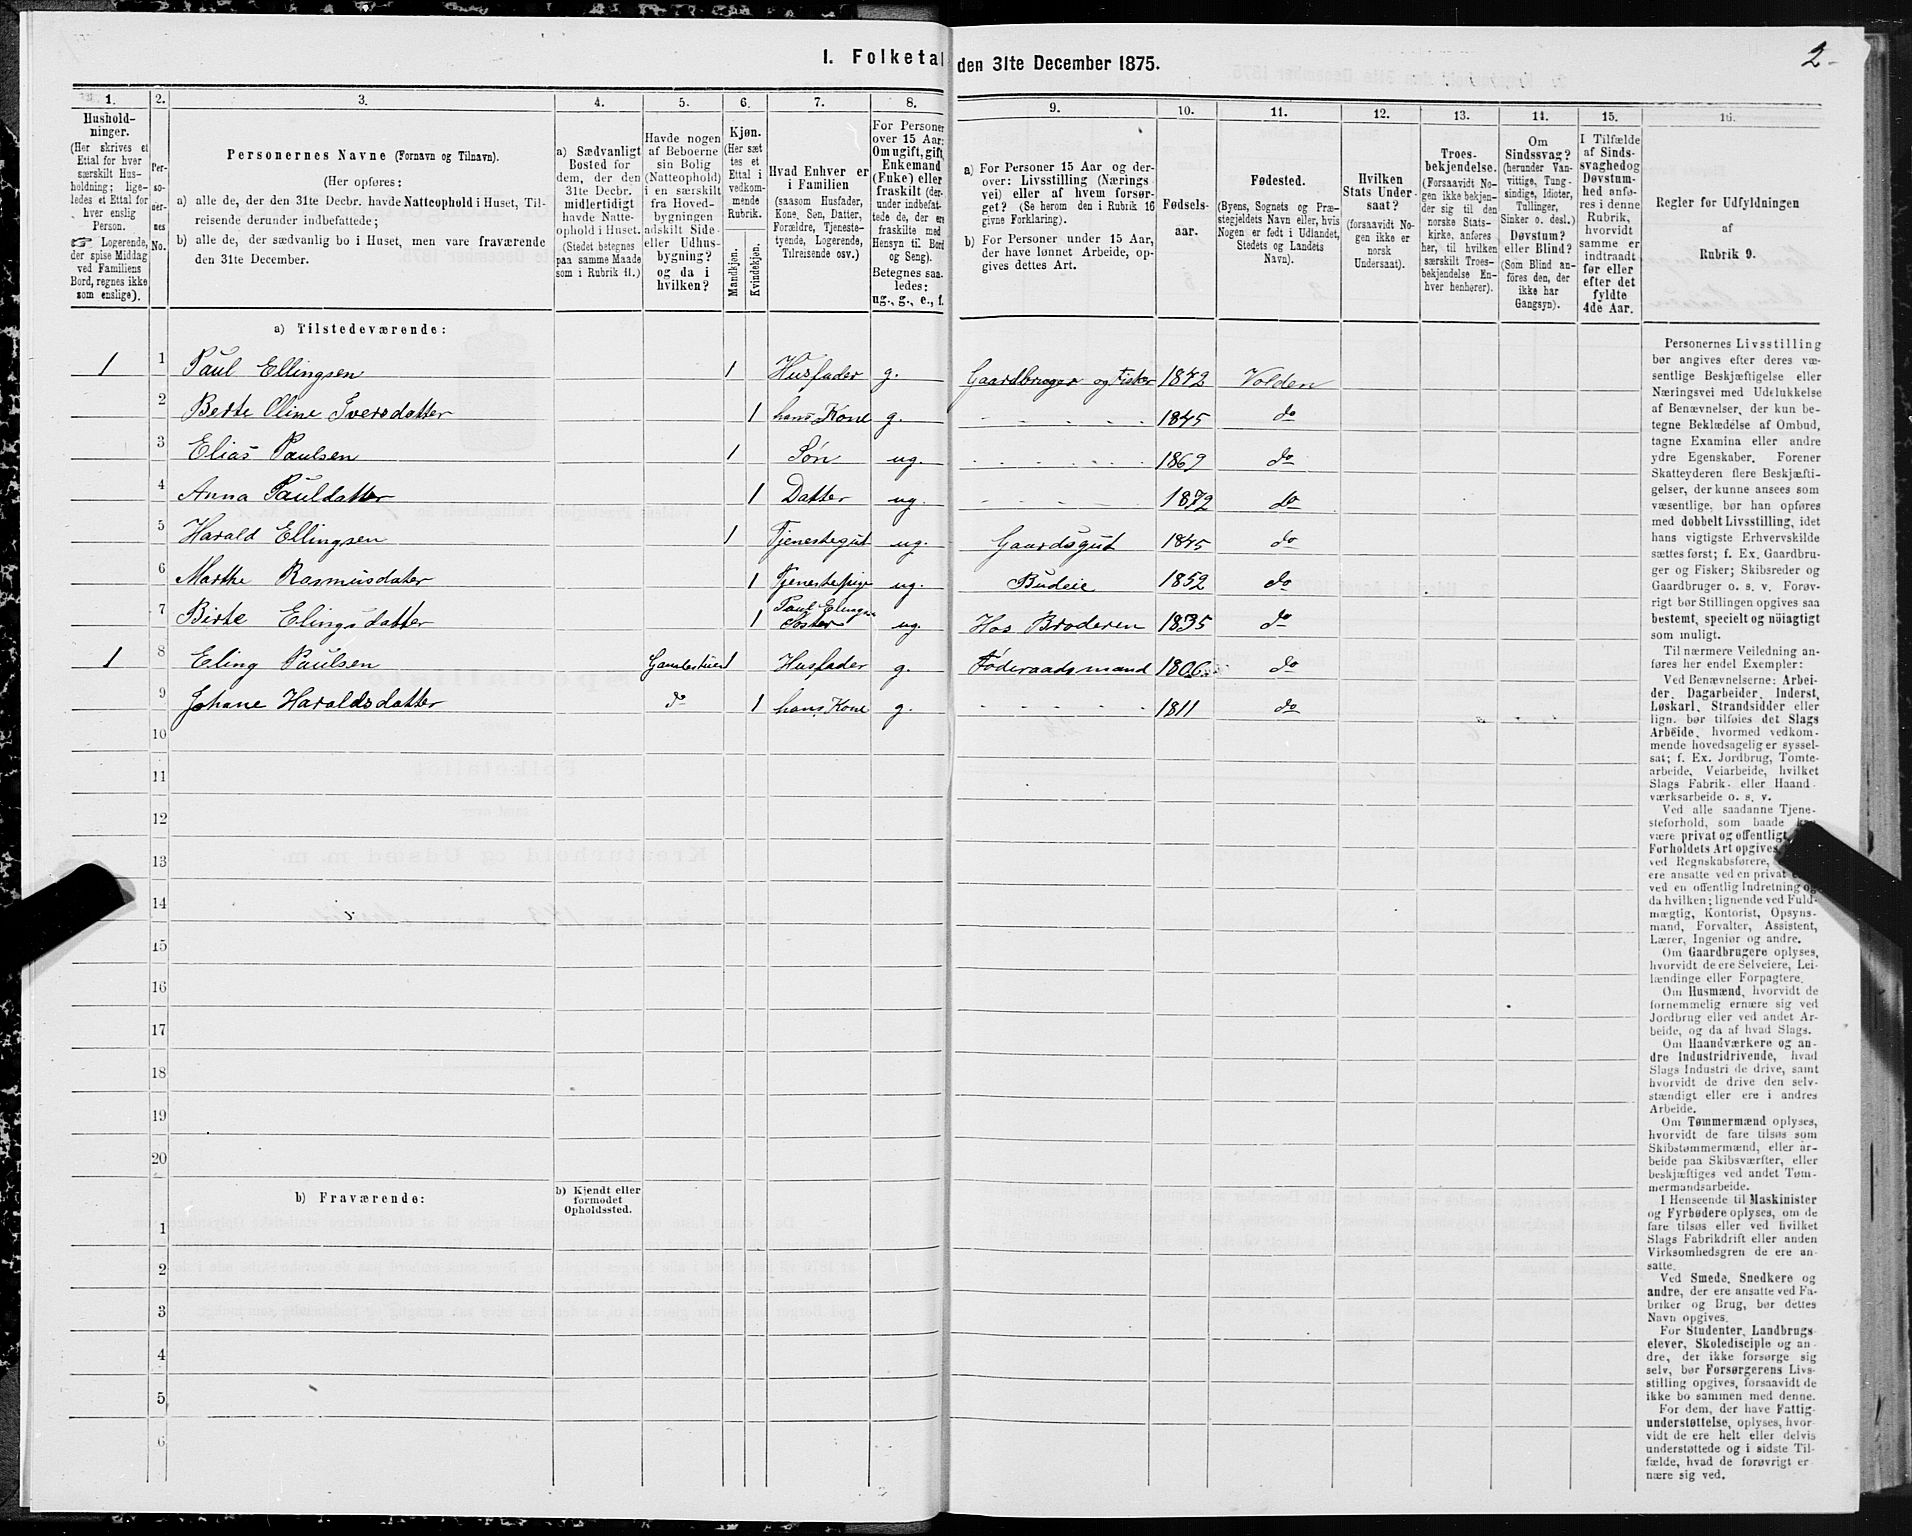 2
I. Folketal den 31te December 1875.
1. 2. 3. 4. 5. 6. 7. 8. 9. 10. 11. 12. 13. 14. 15. 16.
Hushold-
ninger.
(Her skrives et
Ettal for hver
særskilt Hus-
holdning; lige-
ledes et Ettal for
hver enslig
Person.
☞ Logerende,
der spise Middag
ved Familiens
Bord, regnes ikke
som enslige).
Per-
so-
ner-
nes
No.
Personernes Navne (Fornavn og Tilnavn).
(Her opføres:
a) alle de, der den 31te Decbr. havde Natteophold i Huset, Til-
reisende derunder indbefattede;
b) alle de, der sædvanlig bo i Huset, men vare fraværende
den 31te December.
a) Sædvanligt
Bosted for
dem, der den
31te Decbr.
midlertidigt
havde Natte-
ophold i Huset.
(Stedet betegnes
paa samme Maade
som i Rubrik 11.)
Havde nogen
af Beboerne
sin Bolig
(Natteophold)
i en særskilt
fra Hoved-
bygningen
adskilt Side-
eller Udhus-
bygning?
og da i
hvilken?
Kjøn.
(Her sæt
tes et
Ettal i
vedkom-
mende
Rubrik.
Mandkjøn.
Kvindekjøn.
Hvad Enhver er
i Familien
(saasom Husfader,
Kone, Søn, Datter,
Forældre, Tjeneste-
tyende, Logerende,
Tilreisende osv.)
For Personer
over 15 Aar:
Om ugift, gift,
Enkemand
(Enke) eller
fraskilt (der-
under indbefat-
tede de, der ere
fraskilte med
Hensyn til Bord
og Seng).
Betegnes saa-
ledes:
ug., g., e., f.
a) For Personer 15 Aar og der-
over: Livsstilling (Nærings-
vei) eller af hvem forsør-
get? (Se herom den i Rubrik 16
givne Forklaring).
b) For Personer under 15 Aar,
der have lønnet Arbeide, op-
gives dettes Art.
Fødsels-
aar.
Fødested.
(Byens, Sognets og Præ-
stegjeldets Navn eller, hvis
Nogen er født i Udlandet,
Stedets og Landets
Navn).
Hvilken
Stats Under-
saat?
(forsaavidt No-
gen ikke er
norsk
Undersaat).
Troes-
bekjendelse.
(Forsaavidt No-
gen ikke bekjen-
der sig til den
norske Stats-
kirke, anføres
her, til hvilken
særskilt Troes-
bekjendelse En-
hver henhører).
Om
Sindssvag?
(herunder Van-
vittige, Tung-
sindige, Idioter,
Tullinger,
Sinker o. desl.)
Døvstum?
eller Blind?
(Som Blind an-
føres den, der
ikke har
Gangsyn).
I Tilfælde
af Sinds-
svaghed og
Døvstum-
hed anfø-
res i denne
Rubrik,
hvorvidt
samme er
indtraadt
før eller
efter det
fyldte
4de Aar.
Regler for Udfyldningen
af
Rubrik 9.
a) Tilstedeværende:
1 1 Paul Ellingsen 1 Husfader g. Gaardbruger og Fisker 1842 Volden
2 Berte Oline Iversdatter 1 hans Kone g. 1845 do
3 Elias Paulsen 1 Søn ug. 1869 do
4 Anna Pauldatter 1 Datter ug. 1872 do
5 Harald Ellingsen 1 Tjenestegut ug. Gaardsgut 1845 do
6 Marthe Rasmusdater 1 Tjenestepige ug. Budeie 1852 do
7 Birte Elingsdatter 1 Paul Elingsen Søster ug. Hos Broderen 1835 do
1 8 Eling Paulsen 1 Husfader g. Føderaadsmand 1806 do
9 Johane Haraldsdatter do 1 hans Kone g. 1811 do
10
11
12
13
14
15
16
17
18
19
20
b) Fraværende:
b) Kjendt eller
formodet
Opholdssted.
1
2
3
4
5
6
Personernes Livsstilling
bør angives efter deres væ-
sentlige Beskjæftigelse eller
Næringsvei med Udelukkelse
af Benævnelser, der kun be-
tegne Beklædelse af Ombud,
tagne Examina eller andre
ydre Egenskaber. Forener
Skatteyderen flere Beskjæfti-
gelser, der kunne ansees som
væsentlige, bør han opføres
med dobbelt Livsstilling, idet
hans vigtigste Erhvervskilde
sættes først; f. Ex. Gaardbru-
ger og Fisker; Skibsreder og
Gaardbruger o. s. v. Forøv-
rigt bør Stillingen opgives saa
bestemt, specielt og nöiagtigt
som muligt.
Til nærmere Veiledning an-
føres her endel Exempler:
Ved Benævnelserne: Arbei-
der, Dagarbeider, Inderst,
Løskarl, Strandsidder eller
lign. bør tilføies det Slags
Arbeide, hvormed vedkom-
mende hovedsagelig er syssel-
sat; f. Ex. Jordbrug, Tomte-
arbeide, Veiarbeide, hvilket
Slags Fabrik- eller Haand-
værksarbeide o. s. v.
Ved alle saadanne Tjene-
steforhold, som baade
være privat og offentligt,
Forholdets Art opgives,
ved Regnskabsførere,
ere ansatte ved en privat
ved en offentlig Indretning og
da hvilken; lignende ved Fuld-
mægtig, Kontorist, Opsyns-
mand, Forvalter, Assistent,
Lærer, Ingeniør og andre.
Om Gaardbrugere oplyses,
hvorvidt de ere Selveiere, Lei-
lændinge eller Forpagtere.
Om Husmænd, hvorvidt de
fornemmelig ernære sig ved
Jordbrug eller ved andet Ar-
beide, og da af hvad Slags.
Om Haandværkere og an-
dre Industridrivende, hvad
Slags Industri de drive, samt
hvorvidt de drive den selv-
stændigt eller ere i andres
Arbeide.
Om Tømmermænd oplyses,
hvorvidt de fare tilsøs som
Skibstømmermænd, eller ar-
beide paa Skibsværfter, eller
beskjæftiges ved andet Tøm-
mermandsarbeide.
I Henseende til Maskinister
og Fyrbødere oplyses, om de
fare tilsøs eller ved hvilket
Slags Fabrikdrift eller anden
Virksomhedsgren de ere an-
satte.
Ved Smede, Snedkere og
andre, der ere ansatte ved Fa-
briker og Brug, bør dettes
Navn opgives.
For Studenter, Landbrugs-
elever, Skoledisciple og an-
dre, der ikke forsørge sig
selv, bør Forsørgerens Livs-
stilling opgives, forsaavidt de
ikke bo sammen med denne.
For dem, der have Fattig-
understøttelse, oplyses, hvor-
vidt de ere helt eller delvis
understøttede og i sidste Til-
fælde, hvad de forøvrigt er-
nære sig ved.